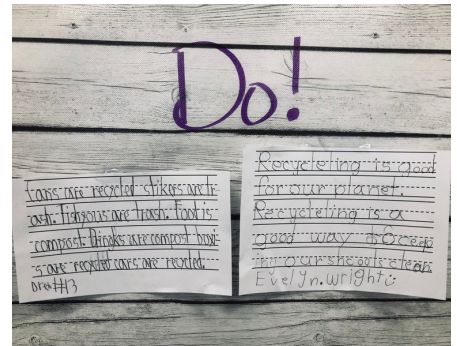 Do!
Cans are recycled stikers are tr
ash. Tishyous are trash. Food is
compost. Drinks are compost boxi
s are recycled cars are recycled.
Recycleling is good
for our planet.
Recycleling is a
good way to ceep
in our sheouls clean
Evelyn.wright